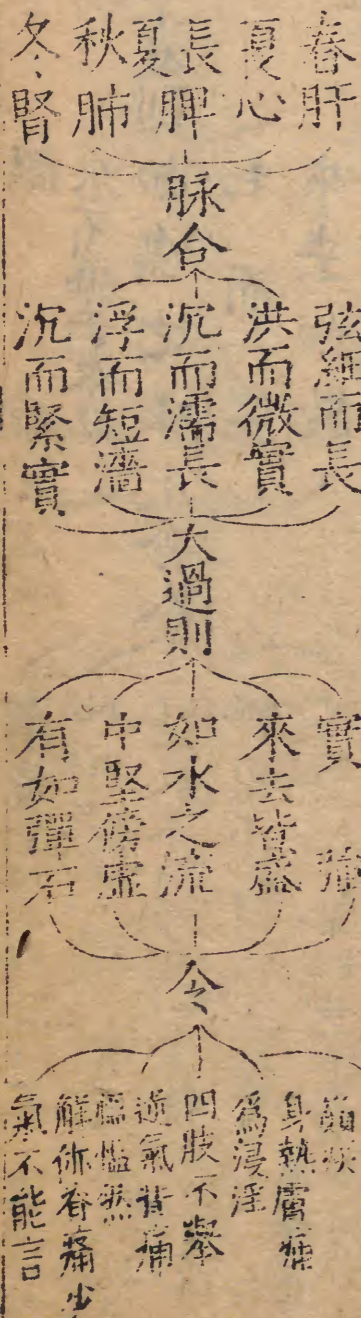 春肝
夏心
長夏脾
秋肺
冬腎
脉合
弦細而長
洪而微實
沉而濡長
浮而短濇
沉而緊實
大過則
實強
來去皆盛
如水之流
中堅傍虛
有如彈石
令
巔疾
身熱膚痛
為浸淫
四肢不舉
逆氣背痛
慍慍然
解㑊脊痛少
氣不能言